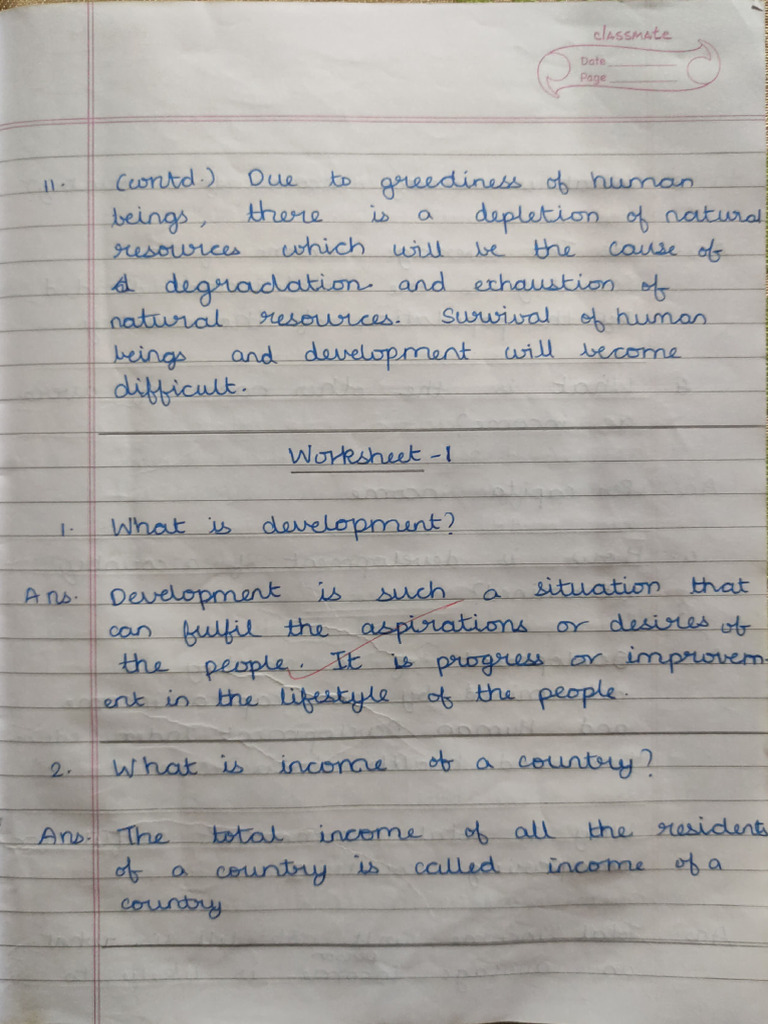 classmate
Date
Page
11. (contd.) Due to greediness of human
beings, there is a depletion of natural
resources which will be the cause of
degradation and exhaustion of
natural resources. Survival of human
beings and development will become
difficult.
Worksheet -1
1. What is development?
Ans. Development is such a situation that
can fulfil the aspirations or desires of
the people. It is progress or improvem-
ent in the lifestyle of the people.
2. What is income of a country?
Ans. The total income of all the residents
of a country is called income of a
country